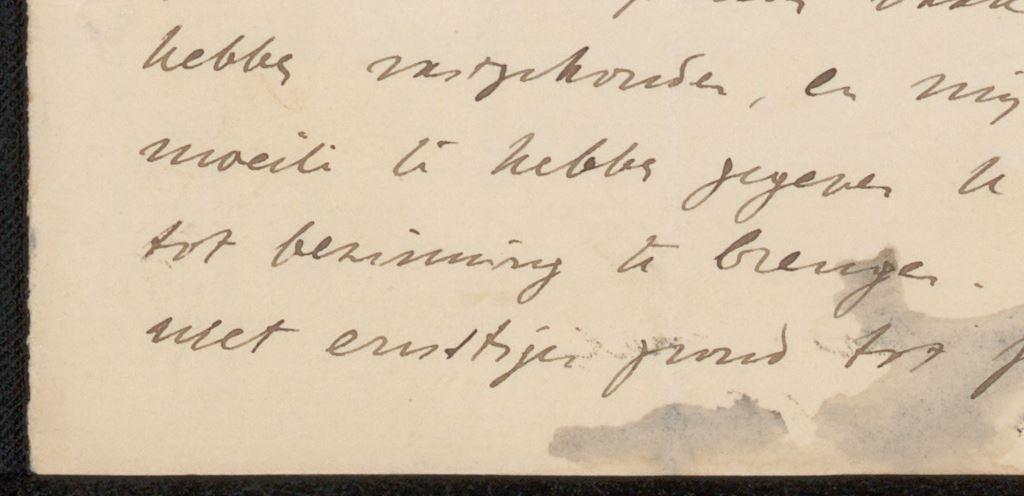 hebben vastgehouden, en mij
moeite te hebben gegeven u
tot bezinning te brengen.
met ernstiger grond tot